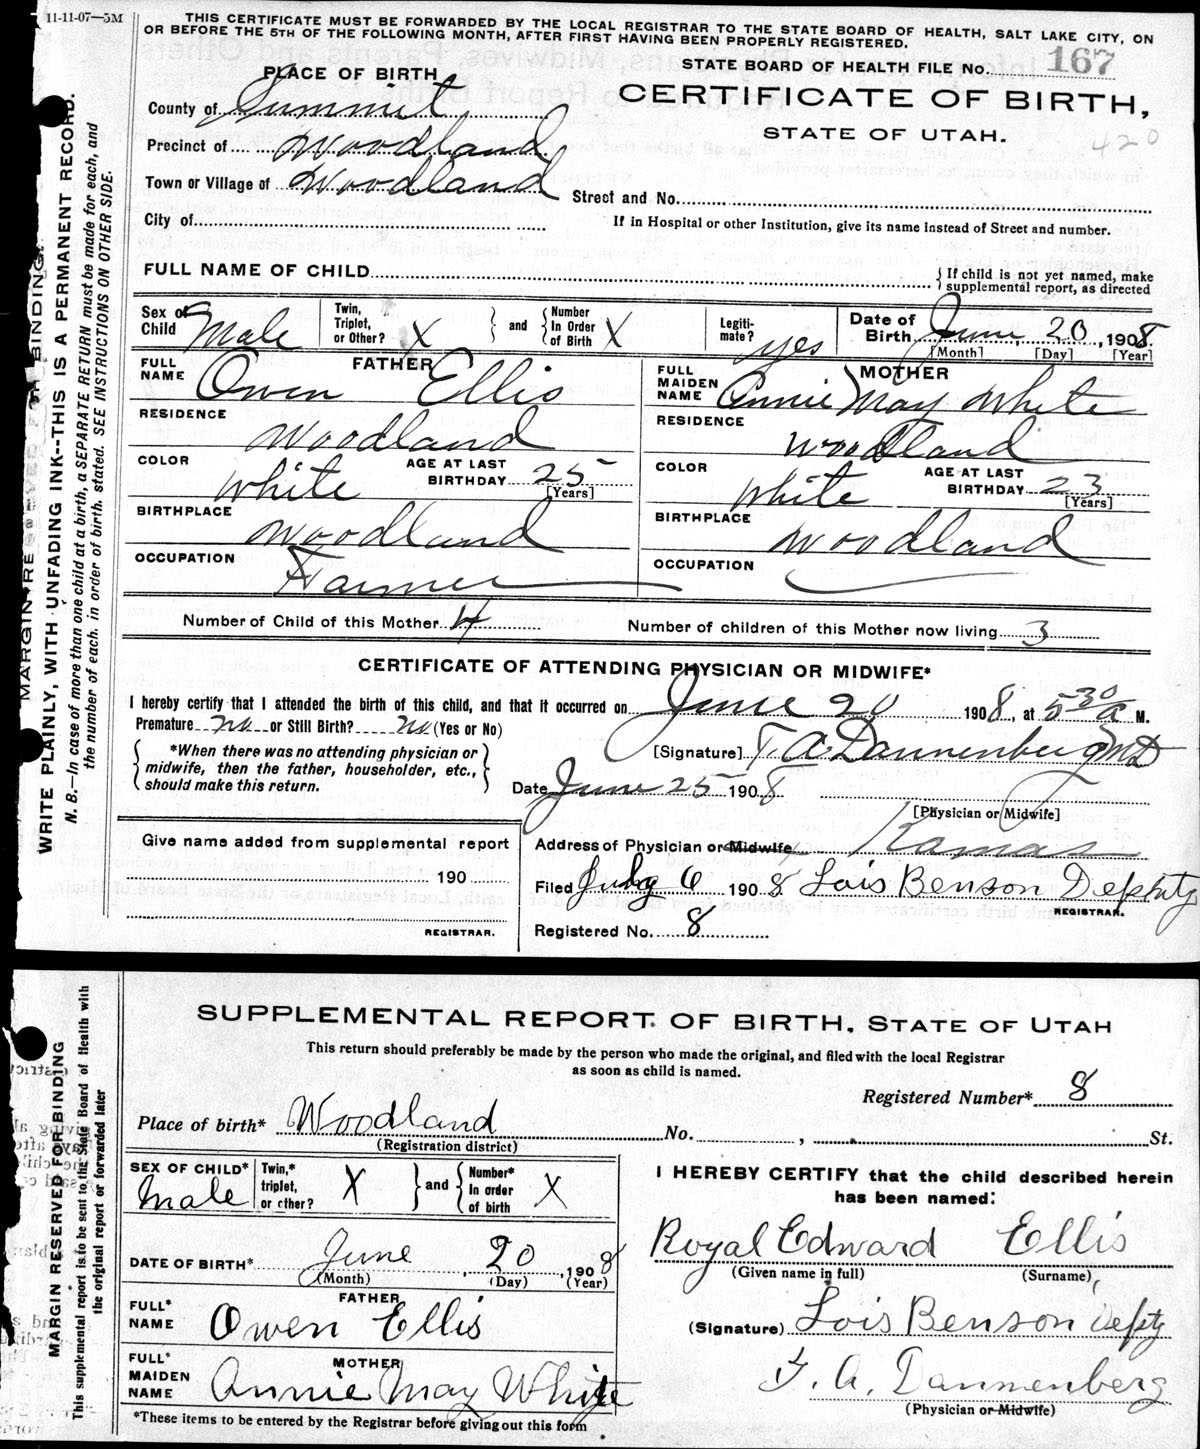 11-11-07—5M
THIS CERTIFICATE MUST BE FORWARDED BY THE LOCAL REGISTRAR TO THE STATE BOARD OF HEALTH, SALT LAKE CITY, ON
OR BEFORE THE 5TH OF THE FOLLOWING MONTH, AFTER FIRST HAVING BEEN PROPERLY REGISTERED.
STATE BOARD OF HEALTH FILE No. 167
PLACE OF BIRTH
CERTIFICATE OF BIRTH,
STATE OF UTAH.
420
County of Summit
Precinct of Woodland
Town or Village of Woodland
Street and No.
City of
If in Hospital or other Institution, give its name instead of Street and number.
FULL NAME OF CHILD
{ If child is not yet named, make
supplemental report, as directed
Sex of Child Male
Twin, Triplet, or Other? X } and { Number In Order of Birth X
Legiti- mate? yes
Date of Birth June, 20, 1908.
[Month] [Day] [Year]
FATHER
FULL NAME Owen Ellis
RESIDENCE Woodland
COLOR White
AGE AT LAST BIRTHDAY 25
[Years]
BIRTHPLACE Woodland
OCCUPATION Farmer
MOTHER
FULL MAIDEN NAME Annie May White
RESIDENCE Woodland
COLOR White
AGE AT LAST BIRTHDAY 23
[Years]
BIRTHPLACE Woodland
OCCUPATION
Number of Child of this Mother 4
Number of children of this Mother now living 3
CERTIFICATE OF ATTENDING PHYSICIAN OR MIDWIFE*
I hereby certify that I attended the birth of this child, and that it occurred on June 20 1908, at 5 30 A M.
Premature no or Still Birth? no (Yes or No)
{ *When there was no attending physician or
midwife, then the father, householder, etc.,
should make this return. }
[Signature] T. A. Dannenberg MD
Date June 25 1908
[Physician or Midwife]
Address of Physician or Midwife Kamas
Filed July 6 1908 Lois Benson Deputy
REGISTRAR.
Registered No. 8
Give name added from supplemental report
190
REGISTRAR.
MARGIN RESERVED FOR BINDING.
WRITE PLAINLY, WITH UNFADING INK--THIS IS A PERMANENT RECORD.
N. B.—In case of more than one child at a birth, a SEPARATE RETURN must be made for each, and
the number of each, in order of birth, stated. SEE INSTRUCTIONS ON OTHER SIDE.
SUPPLEMENTAL REPORT OF BIRTH, STATE OF UTAH
This return should preferably be made by the person who made the original, and filed with the local Registrar
as soon as child is named.
Registered Number* 8
Place of birth* Woodland No. , St.
(Registration district)
SEX OF CHILD* Male
Twin,* triplet, or other? X } and { Number* In order of birth X
DATE OF BIRTH* June, 20, 1908
(Month) (Day) (Year)
FATHER
FULL* NAME Owen Ellis
MOTHER
FULL* MAIDEN NAME Annie May White
*These items to be entered by the Registrar before giving out this form
I HEREBY CERTIFY that the child described herein
has been named:
Royal Edward Ellis
(Given name in full) (Surname)
(Signature) Lois Benson Depty
T. A. Dannenberg
(Physician or Midwife)
MARGIN RESERVED FOR BINDING
This supplemental report is to be sent to the State Board of Health with
the original report or forwarded later